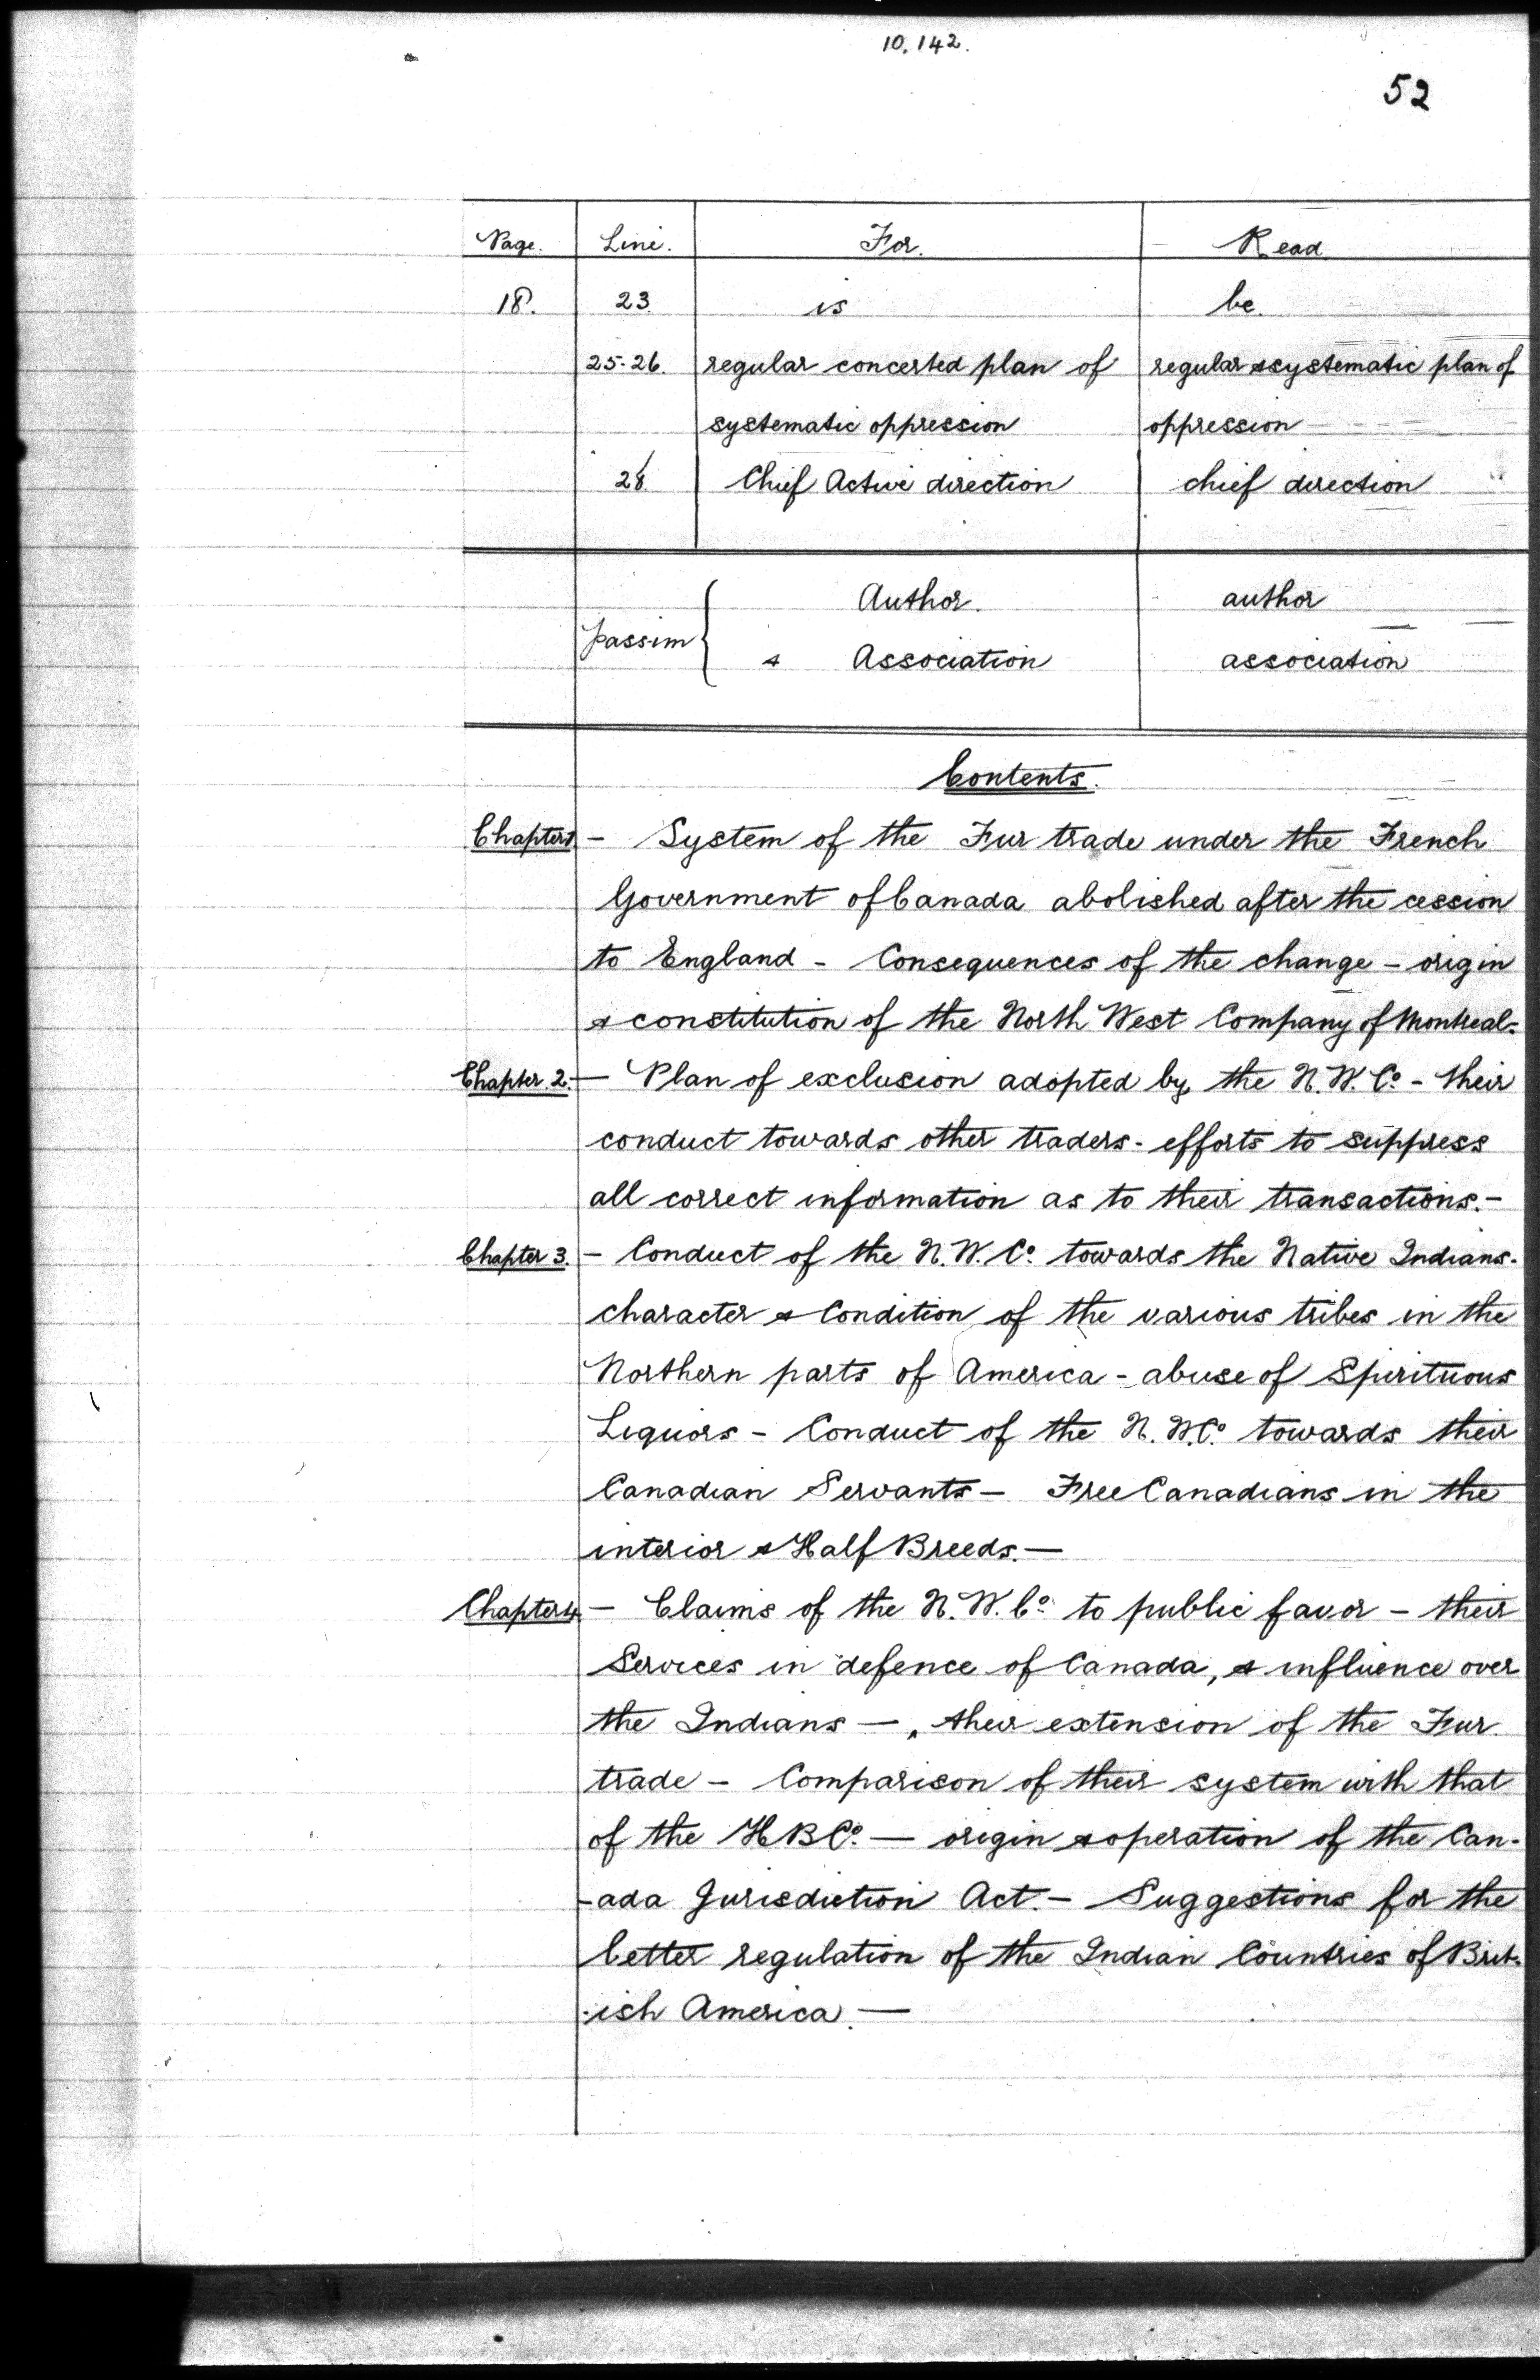 10.142.
52
Page. Line. For. Read
18. 23. is be.
25-26. regular concerted plan of regular & systematic plan of
systematic oppression oppression
28 Chief Active direction chief direction
Author. author
passim
& Association association
Contents.
Chapter 1 - System of the Fur trade under the French
Government of Canada abolished after the cession
to England - Consequences of the change - origin
& constitution of the North West Company of Montreal-
Chapter. 2. - Plan of exclusion adopted by the N.W.Co. - their
conduct towards other traders - efforts to suppress
all correct information as to their transactions. -
Chapter 3. - Conduct of the N.W.Co. towards the Native Indians-
character & Condition of the various tribes in the
Northern parts of America - abuse of Spirituous
Liquors - Conduct of the N.W.Co. towards their
Canadian Servants - Free Canadians in the
interior & Half Breeds. -
Chapter 4 - Claims of the N.W.Co. to public favor - their
Services in defence of Canada, & influence over
the Indians - their extension of the Fur
trade - Comparison of their system with that
of the HBCo. - origin & operation of the Can-
-ada Jurisdiction Act. - Suggestions for the
better regulation of the Indian Countries of Brit-
-ish America. -